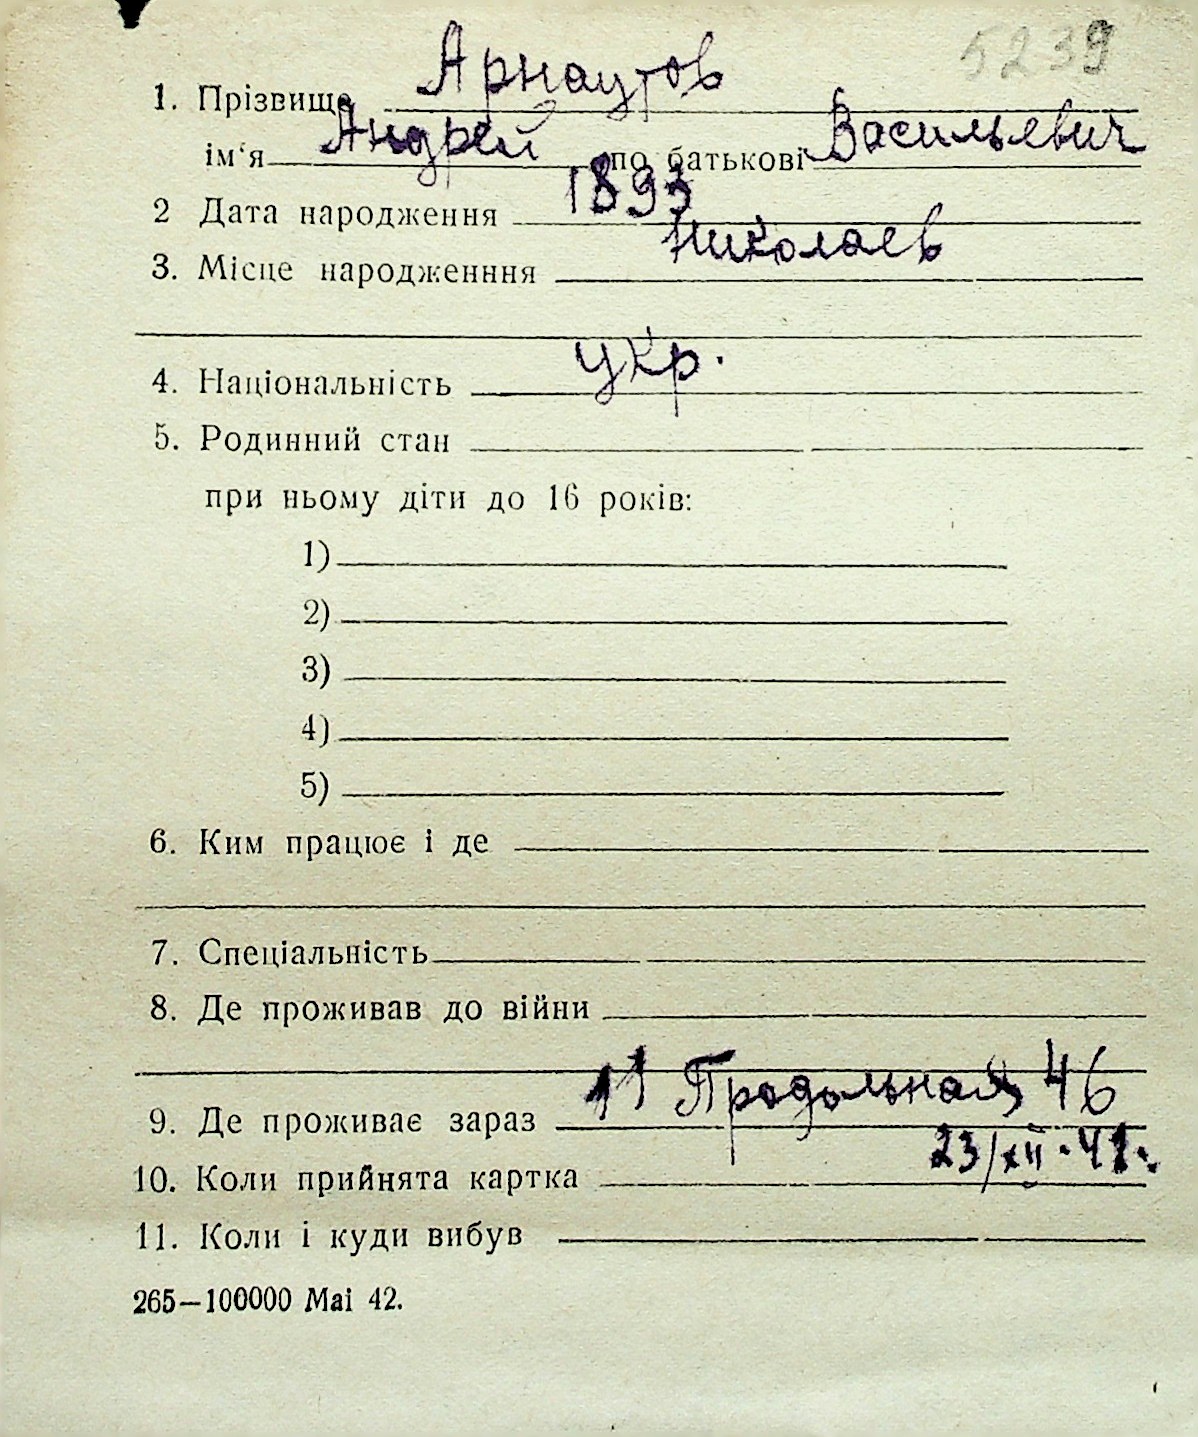 5239
1. Прізвище Арнаутов
ім‘я Андрей по батькові Васильевич
2 Дата народження 1893
3. Місце народженння Николаев
4. Національність Укр.
5. Родинний стан
при ньому діти до 16 років:
1)
2)
3)
4)
5)
6. Ким працює і де
7. Спеціальність
8. Де проживав до війни
9. Де проживає зараз 11 Продольная 46
10. Коли прийнята картка 23/XII.42.
11. Коли і куди вибув
265—100000 Mai 42.